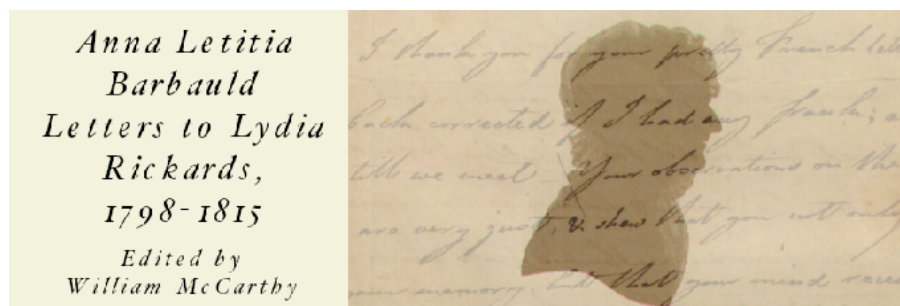 Anna Letitia
Barbauld
Letters to Lydia
Rickards,
1798-1815
Edited by
William McCarthy
I thank you for your pretty French lett
back corrected if I had any franks; a
till we meet. Your observations on the
are very just, & shew that you not only
your memory, but that your mind rece